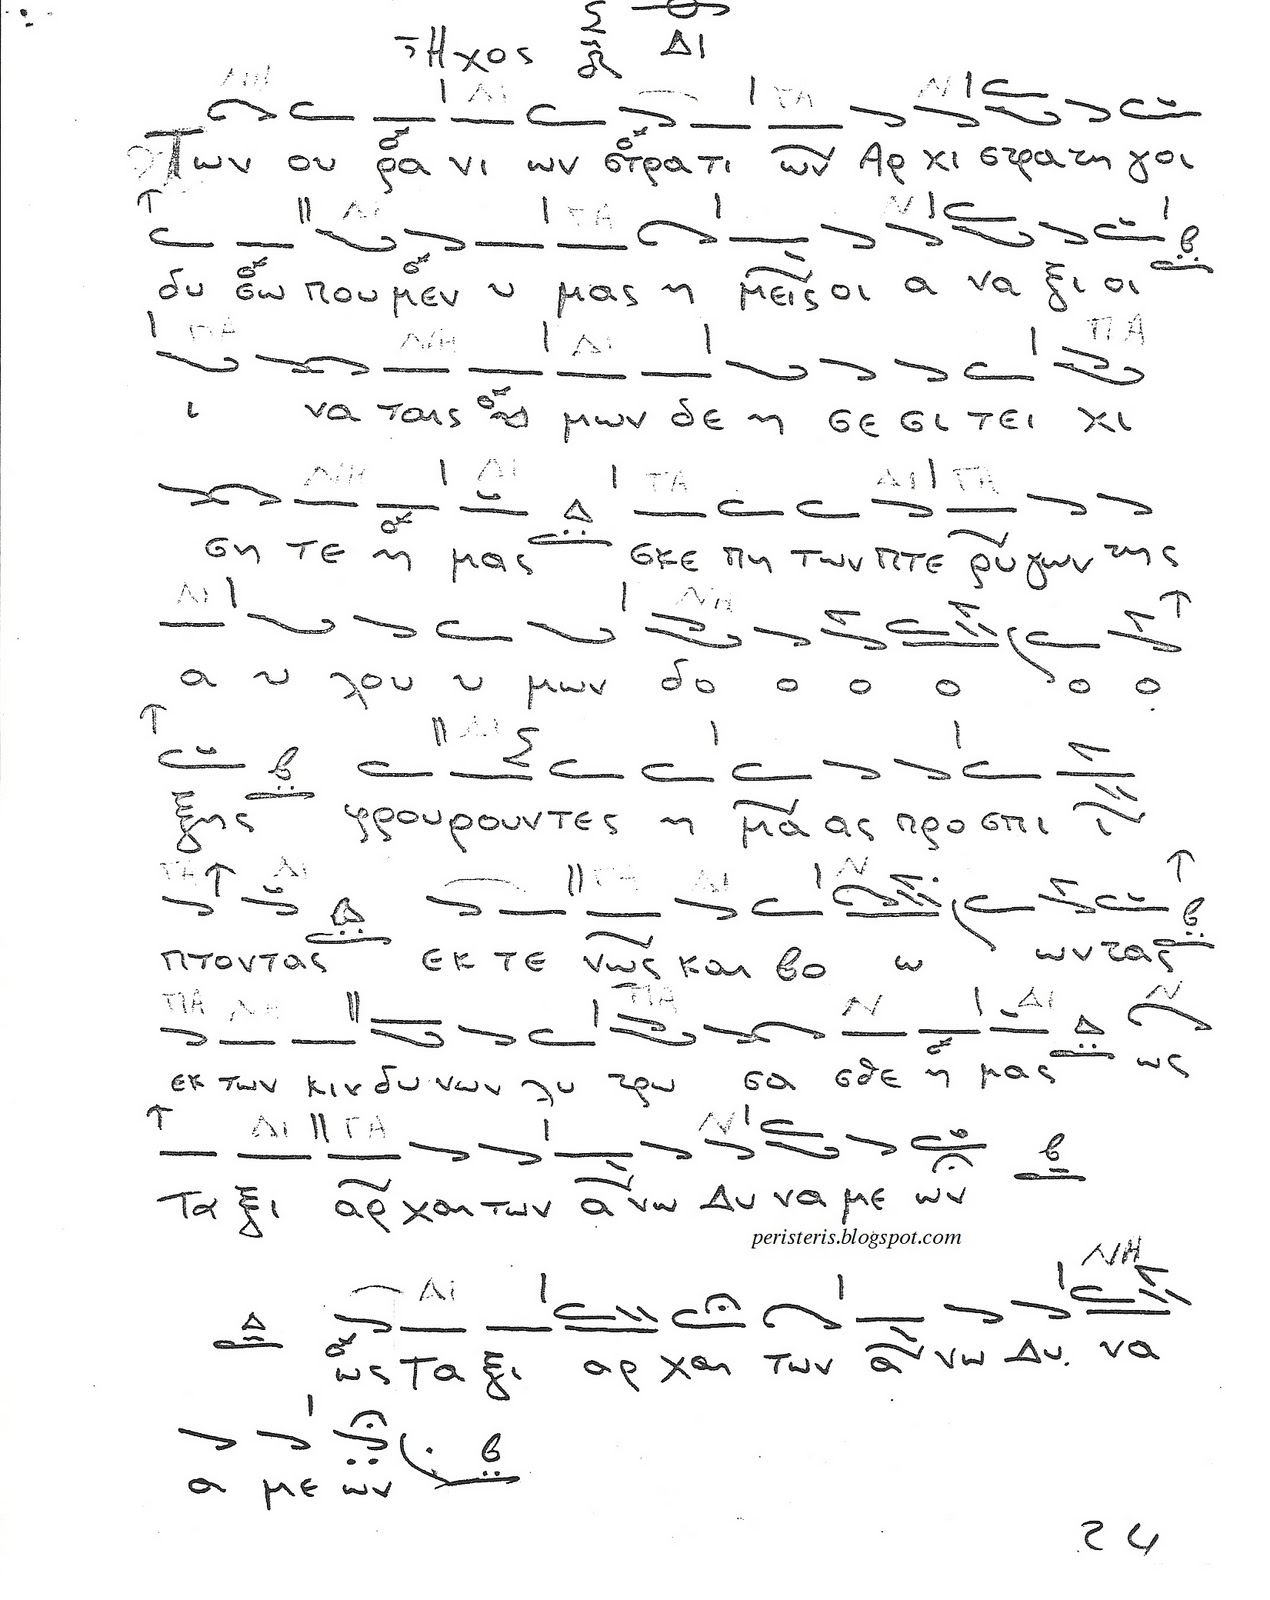 Ἦχος Δι
Των ου ρα νι ων στρα τι ων Αρ χι στρα τη γοι
δυ σω που μεν υ μας η μεις οι α να ξι οι
ι να ταις υ μων δε η σε σι τει χι
ση τε η μας Δ σκε πη των πτε ρυ γων της
α υ λου υ μων δο ο ο ο ο ο
ξης φρουρουντες η μα ας προ σπι ι
πτοντας εκ τε νως και βο ω ωντας
εκ των κιν δυ νων λυ τρω σα σθε η μας Δ ως
Τα ξι αρ χαι των α νω Δυ να με ων
peristeris.blogspot.com
Δ ως Τα ξι αρ χαι των α νω Δυ. να
α με ων
24